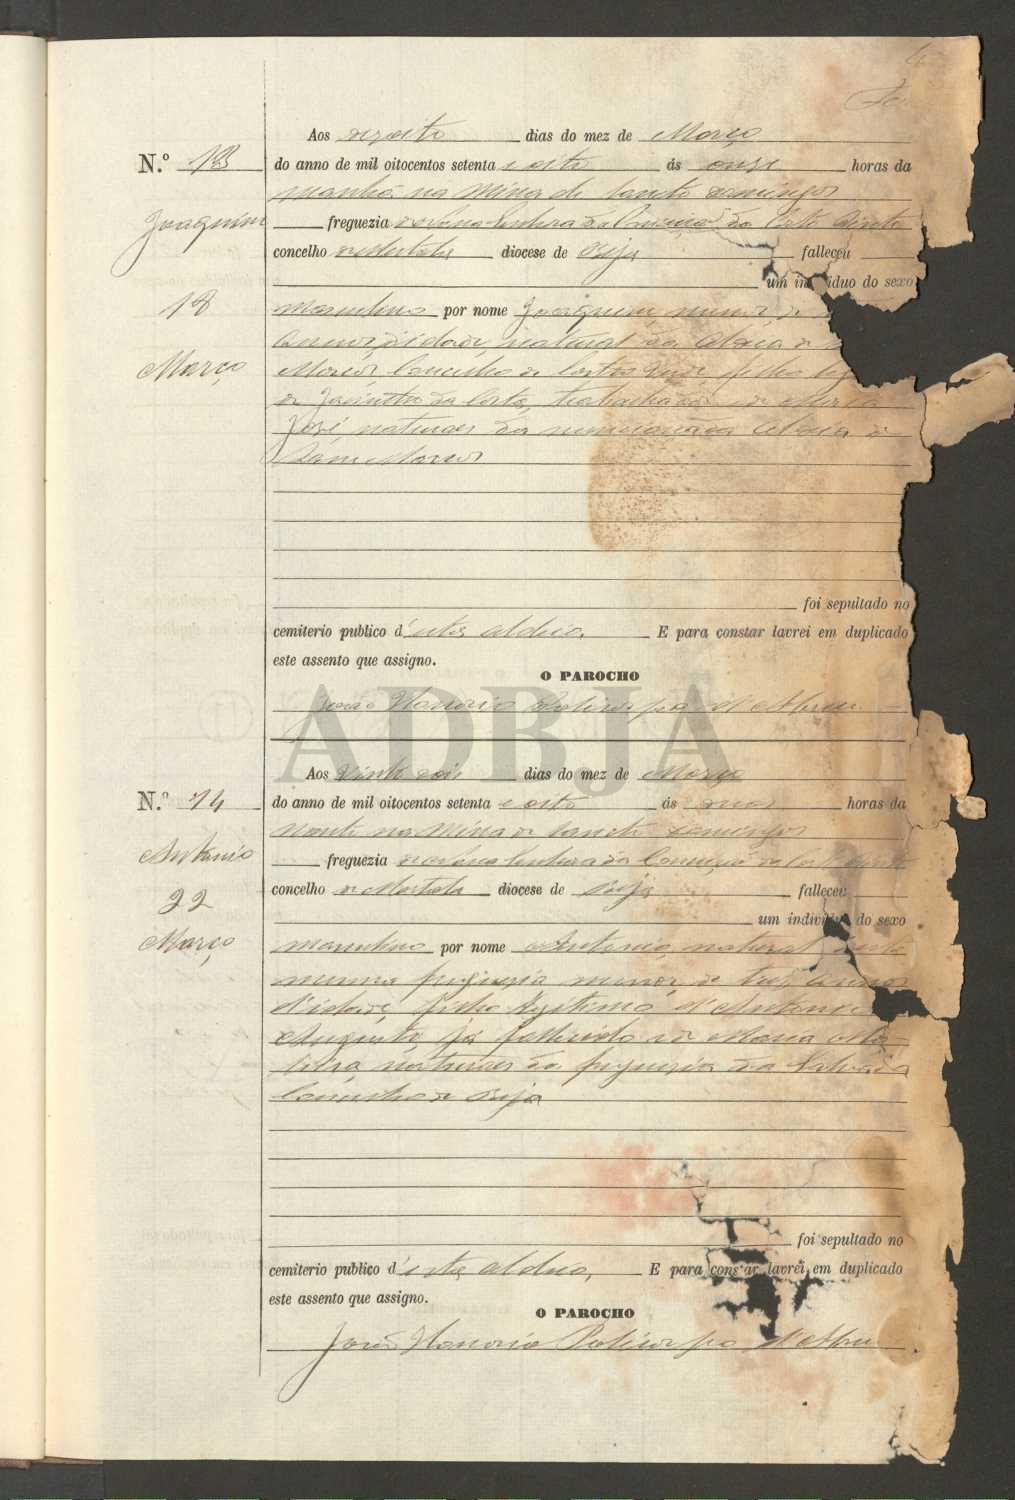 Aos dezoito dias do mez de Março
N.º 13
do anno de mil oitocentos setenta e oito ás onze horas da
manhã na Mina de Sancto Domingos
Joaquim
freguezia de Nossa Senhora da Conceição do
concelho de Mertola diocese de Beja falleceu
um individuo do sexo
18
masculino por nome Joaquim, menor, de
annos d'idade, natural da Aldeia de
Março
Marcos, Concelho de Castro Verde, filho
de Jacintho da Costa, trabalhador de Maria
José, naturaes da mencionada Aldeia de
Sam Marcos
foi sepultado no
cemiterio publico d'esta aldeia. E para constar lavrei em duplicado
este assento que assigno.
O PAROCHO
João Honorio Policarpo d'Abreu
ADBJA
Aos vinte dois dias do mez de Março
N.º 14
do anno de mil oitocentos setenta e oito ás horas da
noute na Mina de Sancto Domingos
Antonio
freguezia de Nossa Senhora da Conceição do
22
concelho de Mertola diocese de Beja falleceu
um individuo do sexo
Março
masculino por nome Antonio, natural desta
mesma freguezia menor de tres annos
d'idade, filho legitimo d'Antonio
Augusto, já fallecido e de Maria
naturaes da freguezia da Salvada
Concelho de Beja
foi sepultado no
cemiterio publico d'esta aldeia. E para constar lavrei em duplicado
este assento que assigno.
O PAROCHO
João Honorio Policarpo d'Abreu